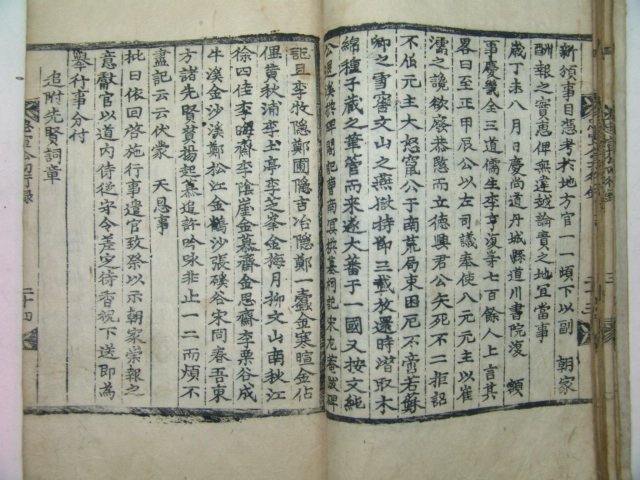 新領事目憑考於地方官一一頒下以副 朝家
酬報之實恵俾無遲越論責之地宜當事
歲丁未八月日慶尚道丹城縣道川書院復 額
事慶幾全三道儒生李亨湀等七百餘人上言其
畧曰至正甲辰公以左司議奉使八元元主以崔
濡之讒欲廢恭愍而立德興君公矢死不二拒詔
不伯元主大怒竄公于南荒局束困厄不啻若蘇
卿之雪窖文山之燕獄持節三載放還時潛取木
綿種子藏之華管而來遂大蕃于一國又按文純
公退溪撰碑閣記曺南冥撰墓祠記宋尤菴跋碑
記且李牧隱鄭圃隱吉冶隱鄭一蠹金寒暄金佔
俚黃秋浦李土亭李芝峯金梅月柳文山南秋江
徐四佳李晦齋李陰崖金慕齋金思齋李栗谷成
牛溪金沙溪鄭松江金鶴沙張磎谷宋同春吾東
方諸先賢贊揚起慕追許吟咏非止一二而煩不
盡記云云伏蒙 天恩事
批曰依回啓施行事遣官致祭以示朝家崇報之
意獻官以道内侍從守令差定待香祝下送即為
舉行事分付
追附先賢詞章
二十四